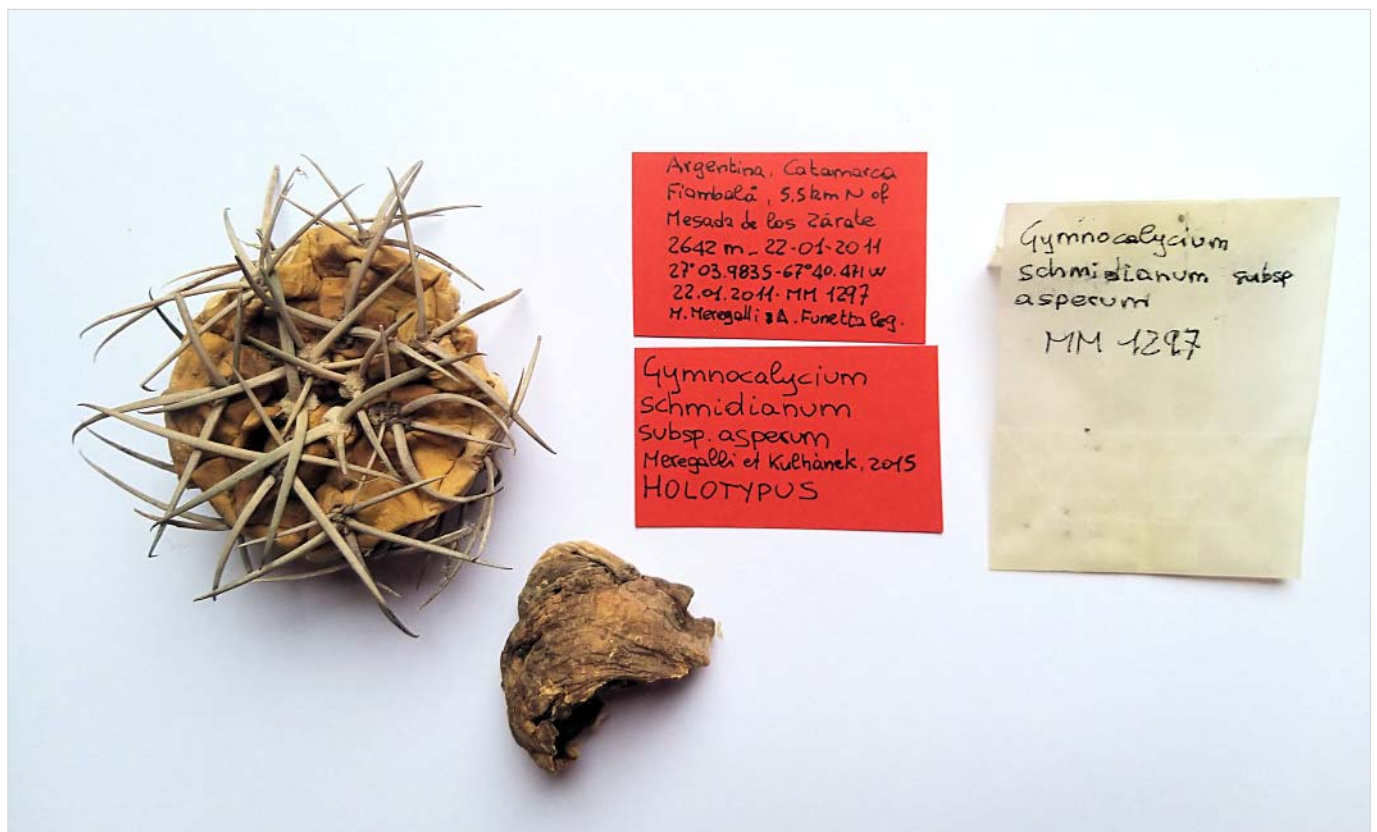 Argentina, Catamarca
Fiambalà, 5.5km N of
Mesada de los Zárate
2642 m_ 22-01-2011
27°03.983S-67°40.471W
22.01.2011. MM 1297
M. Meregalli & A. Funetta leg.
Gymnocalycium
schmidianum
subsp. asperum
Meregalli et Kulhànek, 2015
HOLOTYPUS
Gymnocalycium
schmidianum subsp
asperum
MM 1297